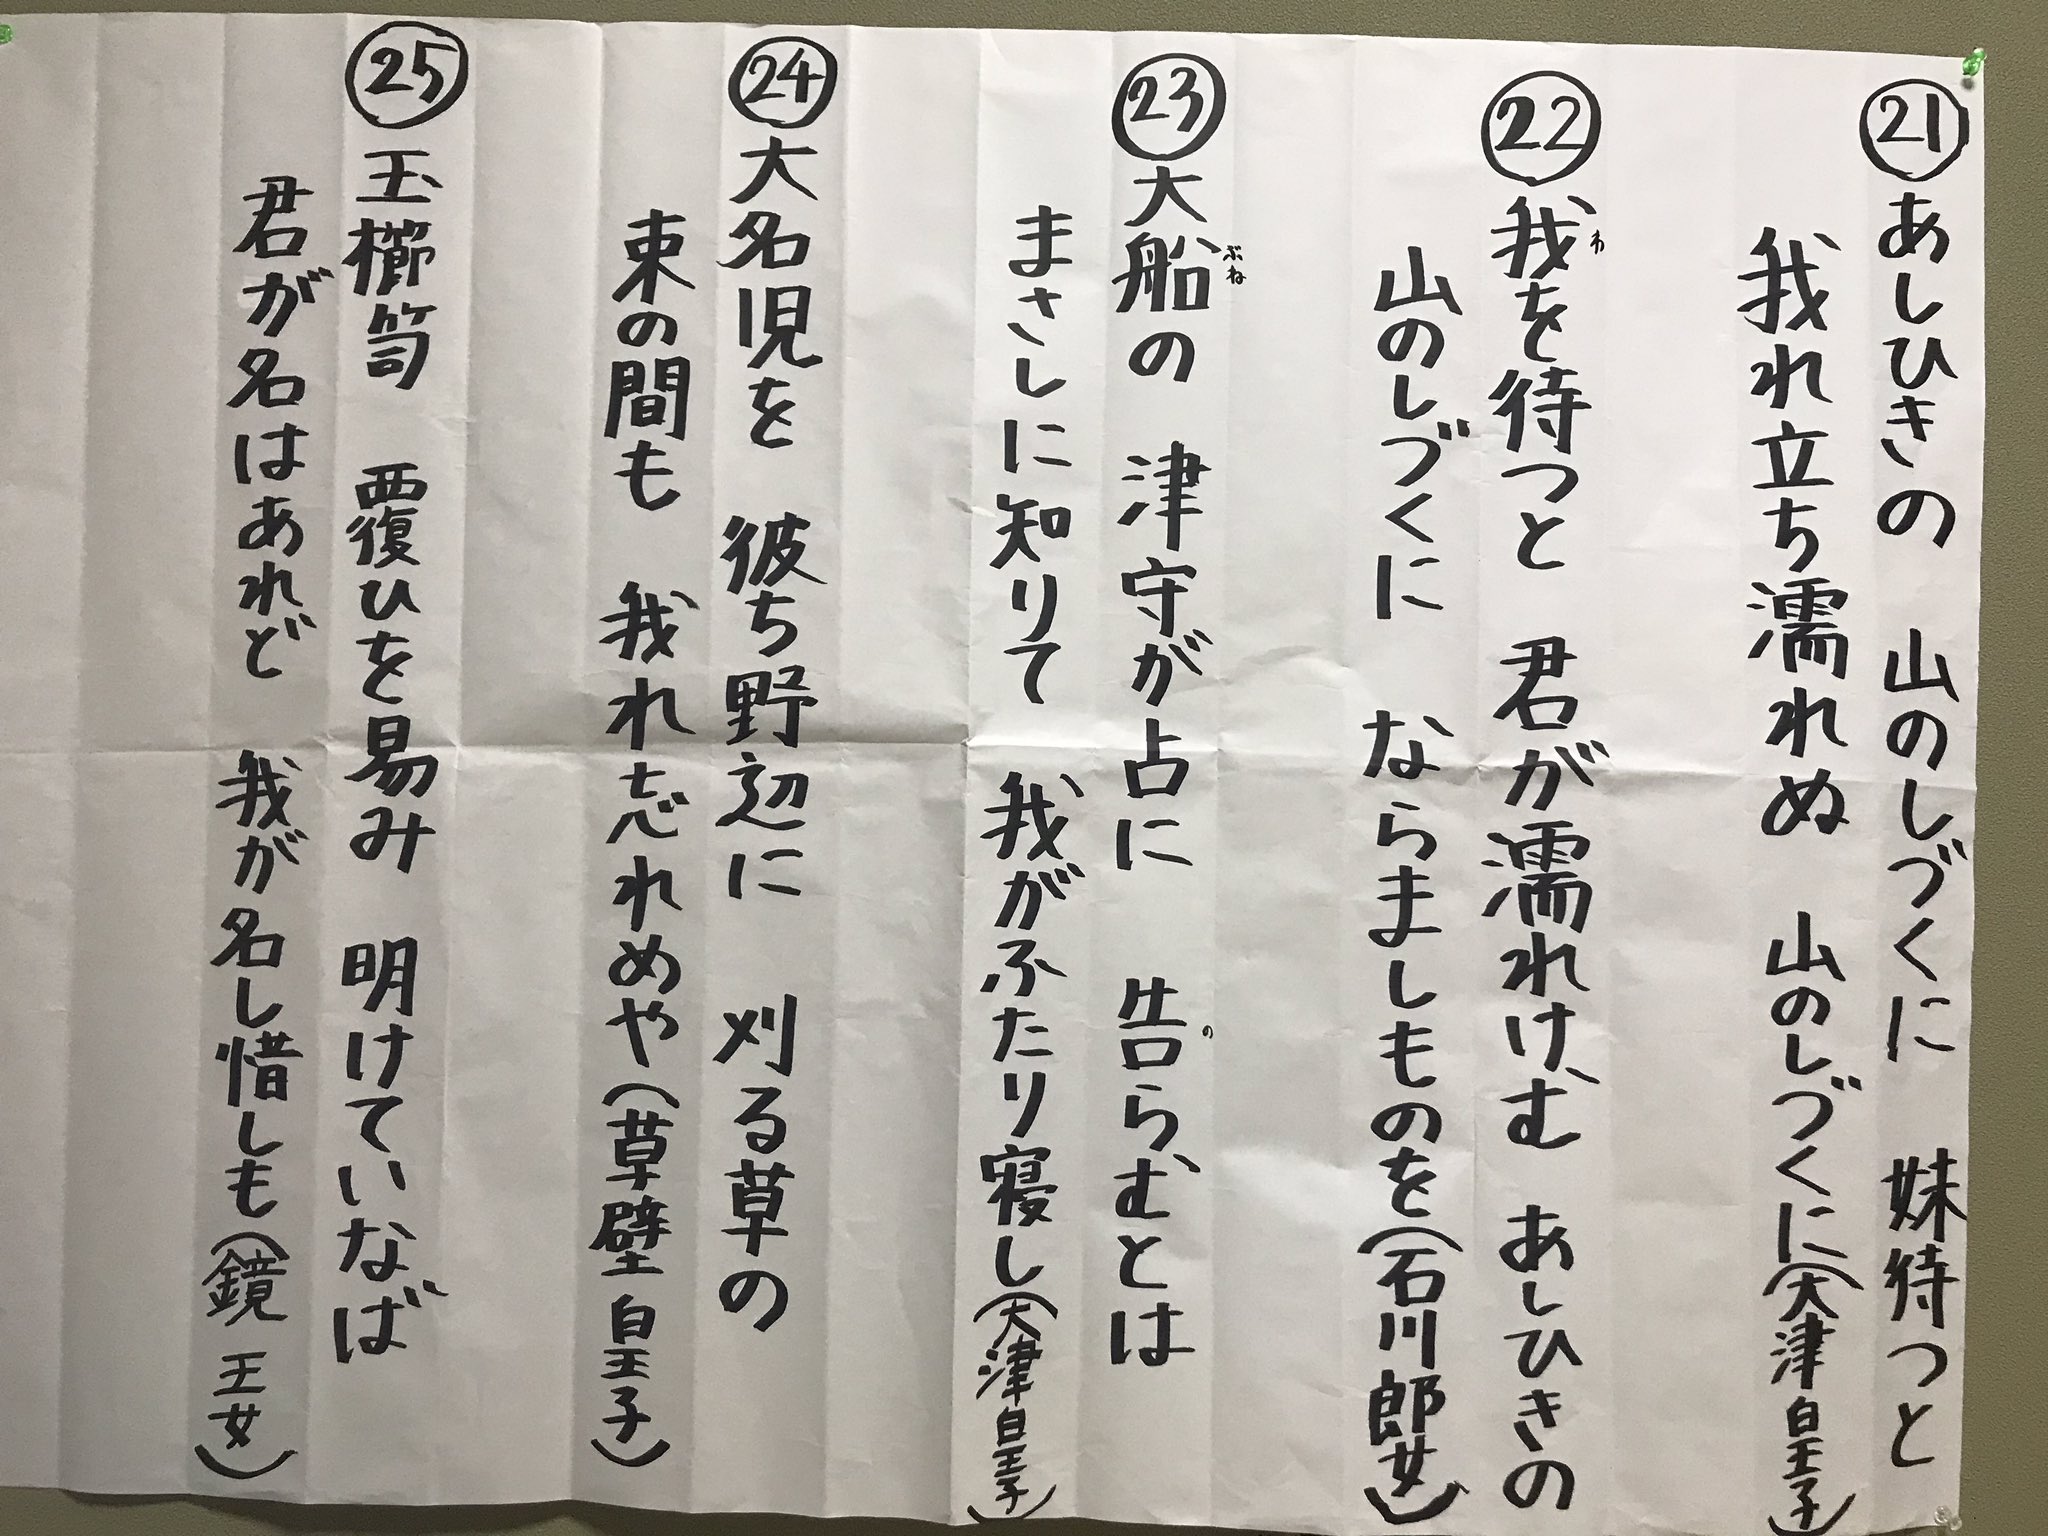 ㉑あしひきの 山のしづくに 妹待つと
我れ立ち濡れぬ 山のしづくに(大津皇子)
㉒我を待つと 君が濡れけむ あしひきの
わ
山のしづくに ならましものを(石川郎女)
㉓大船の 津守が占に 告らむとは
ぶね
の
まさしに知りて 我がふたり寝し(大津皇子)
㉔大名児を 彼ち野辺に 刈る草の
束の間も 我れ忘れめや(草壁皇子)
㉕玉櫛笥 覆ひを易み 明けていなば
君が名はあれど 我が名し惜しも(鏡 王女)